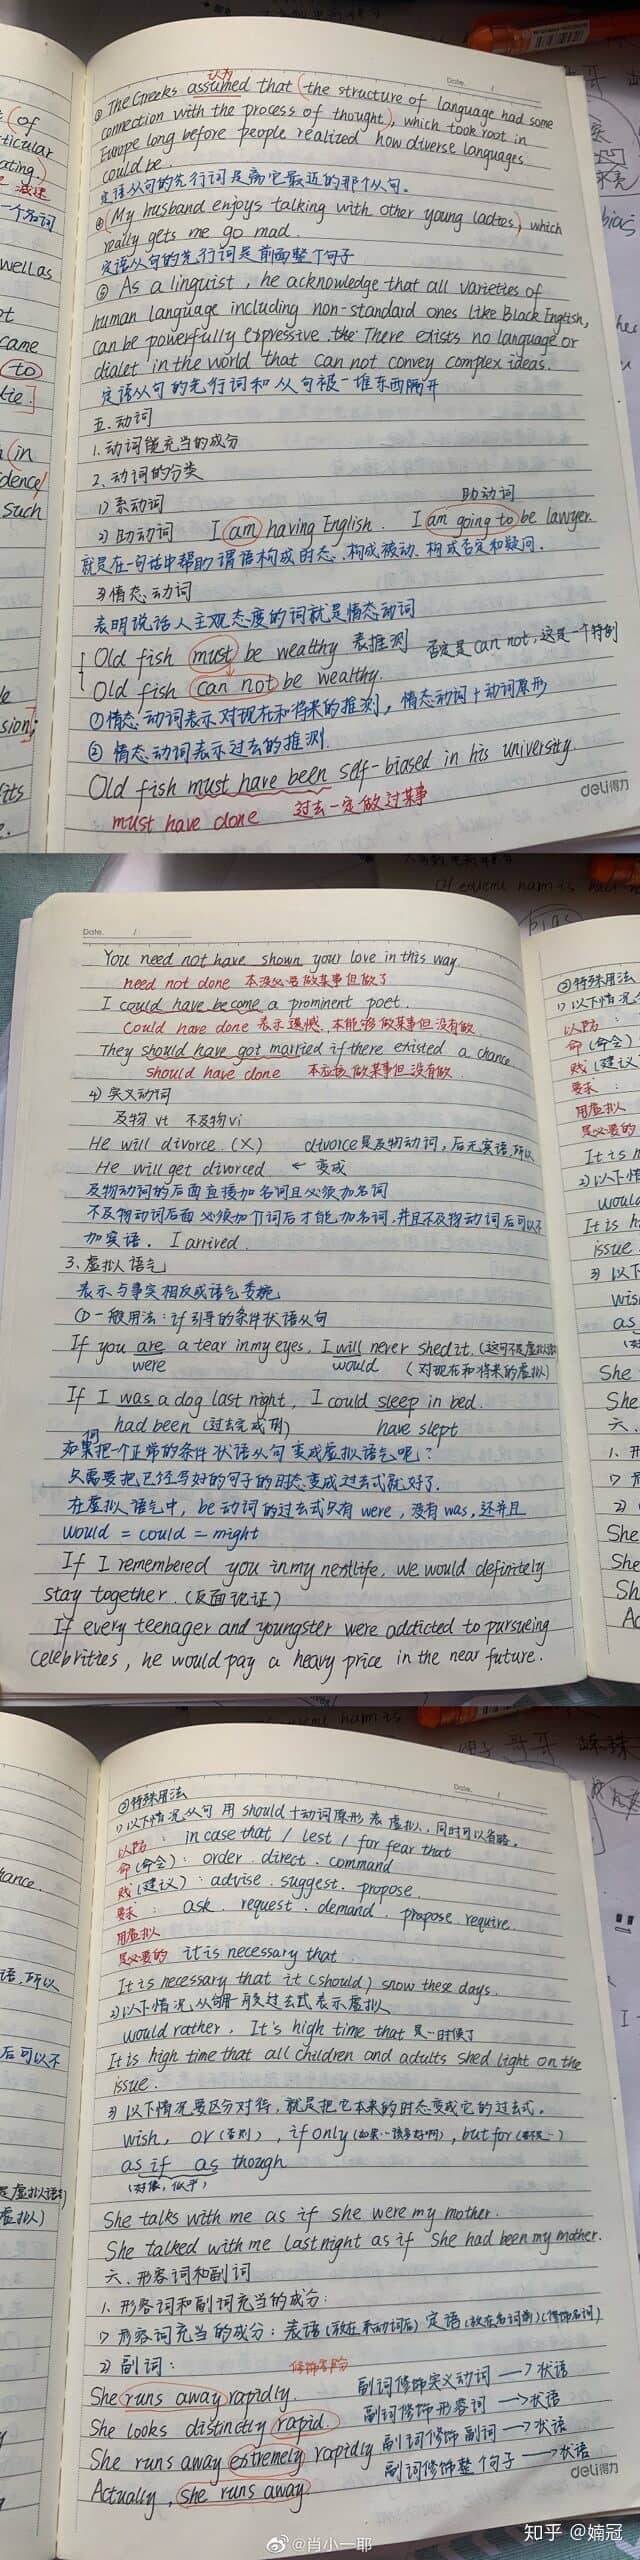 Date. /
认为
① The Greeks assumed that (the structure of language had some
connection with the process of thought), which took root in
Europe long before people realized how diverse languages
could be.
定语从句的先行词是离它最近的那个从句。
(My husband enjoys talking with other young ladies), which
really gets me go mad.
定语从句的先行词是前面整个句子
③ As a linguist, he acknowledge that all varieties of
human language including non-standard ones like Black English,
can be powerfully expressive. There exists no language or
dialet in the world that can not convey complex ideas.
定语从句的先行词和从句被一堆东西隔开
五. 动词
1. 动词能充当的成分
2. 动词的分类
1) 系动词 助动词
2) 助动词 I am having English. I am going to be lawyer.
就是在一句话中帮助谓语构成时态、构成被动、构成否定和疑问.
3) 情态动词
表明说话人主观态度的词就是情态动词
Old fish must be wealthy 表推测 否定是can not, 这是一个特例
Old fish can not be wealthy.
①情态动词表示对现在和将来的推测, 情态动词+动词原形
② 情态动词表示过去的推测.
Old fish must have been self-biased in his university.
deli得力
must have done 过去一定做过某事
Date. /
You need not have shown your love in this way.
need not done 本没必要做某事但做了
I could have become a prominent poet.
Could have done 表示遗憾, 本能够做某事但没有做
They should have got married if there existed a chance
should have done 本应该做某事但没有做
4) 实义动词
及物 vt 不及物vi
He will divorce. (×) divorce是及物动词, 后无宾语, 所以
He will get divorced ← 变成
及物动词的后面直接加名词且必须加名词
不及物动词后面必须加介词后才能加名词, 并且不及物动词后可以不
加宾语. I arrived.
3、虚拟语气
表示与事实相反或语气委婉
①一般用法: if引导的条件状语从句
If you are a tear in my eyes, I will never shed it. (这句不是虚拟语气)
were would (对现在和将来的虚拟)
If I was a dog last night, I could sleep in bed.
had been (过去完成时) have slept
如何把一个正常的条件状语从句变成虚拟语气呢?
只需要把已经写好的句子的时态变成过去式就好了.
在虚拟语气中, be动词的过去式只有were, 没有was, 还并且
would = could = might
If I remembered you in my nextlife, we would definitely
stay together. (反面论证)
If every teenager and youngster were addicted to pursueing
celebrities, he would pay a heavy price in the near future.
Date. /
②特殊用法
1) 以下情况从句用 should+动词原形表虚拟, 同时可以省略.
以防: in case that / lest / for fear that
命(命令): order. direct. command
贱(建议): advise. suggest. propose.
要求: ask. request. demand. propose. require.
用虚拟
是必要的 it is necessary that.
It is necessary that it (should) snow these days.
2) 以下情况从句用一般过去式表示虚拟
would rather. It's high time that 是…时候了
It is high time that all children and adults shed light on the
issue.
3) 以下情况要区分对待, 就是把它本来的时态变成它的过去式.
wish, or (否则), if only (如果…该多好啊), but for (要不是…)
as if as though
(好像, 似乎)
She talks with me as if she were my mother.
She talked with me last night as if she had been my mother.
六. 形容词和副词
1. 形容词和副词充当的成分:
1) 形容词充当的成分: 表语(放在系动词后) 定语(放在名词前)(修饰名词)
2) 副词:
She runs away rapidly. 副词修饰实义动词 → 状语
She looks distinctly rapid. 副词修饰形容词 → 状语
She runs away extremely rapidly 副词修饰副词 → 状语
Actually, she runs away. 副词修饰整个句子 → 状语
deli得力
@肖小一耶
知乎 @婻冠